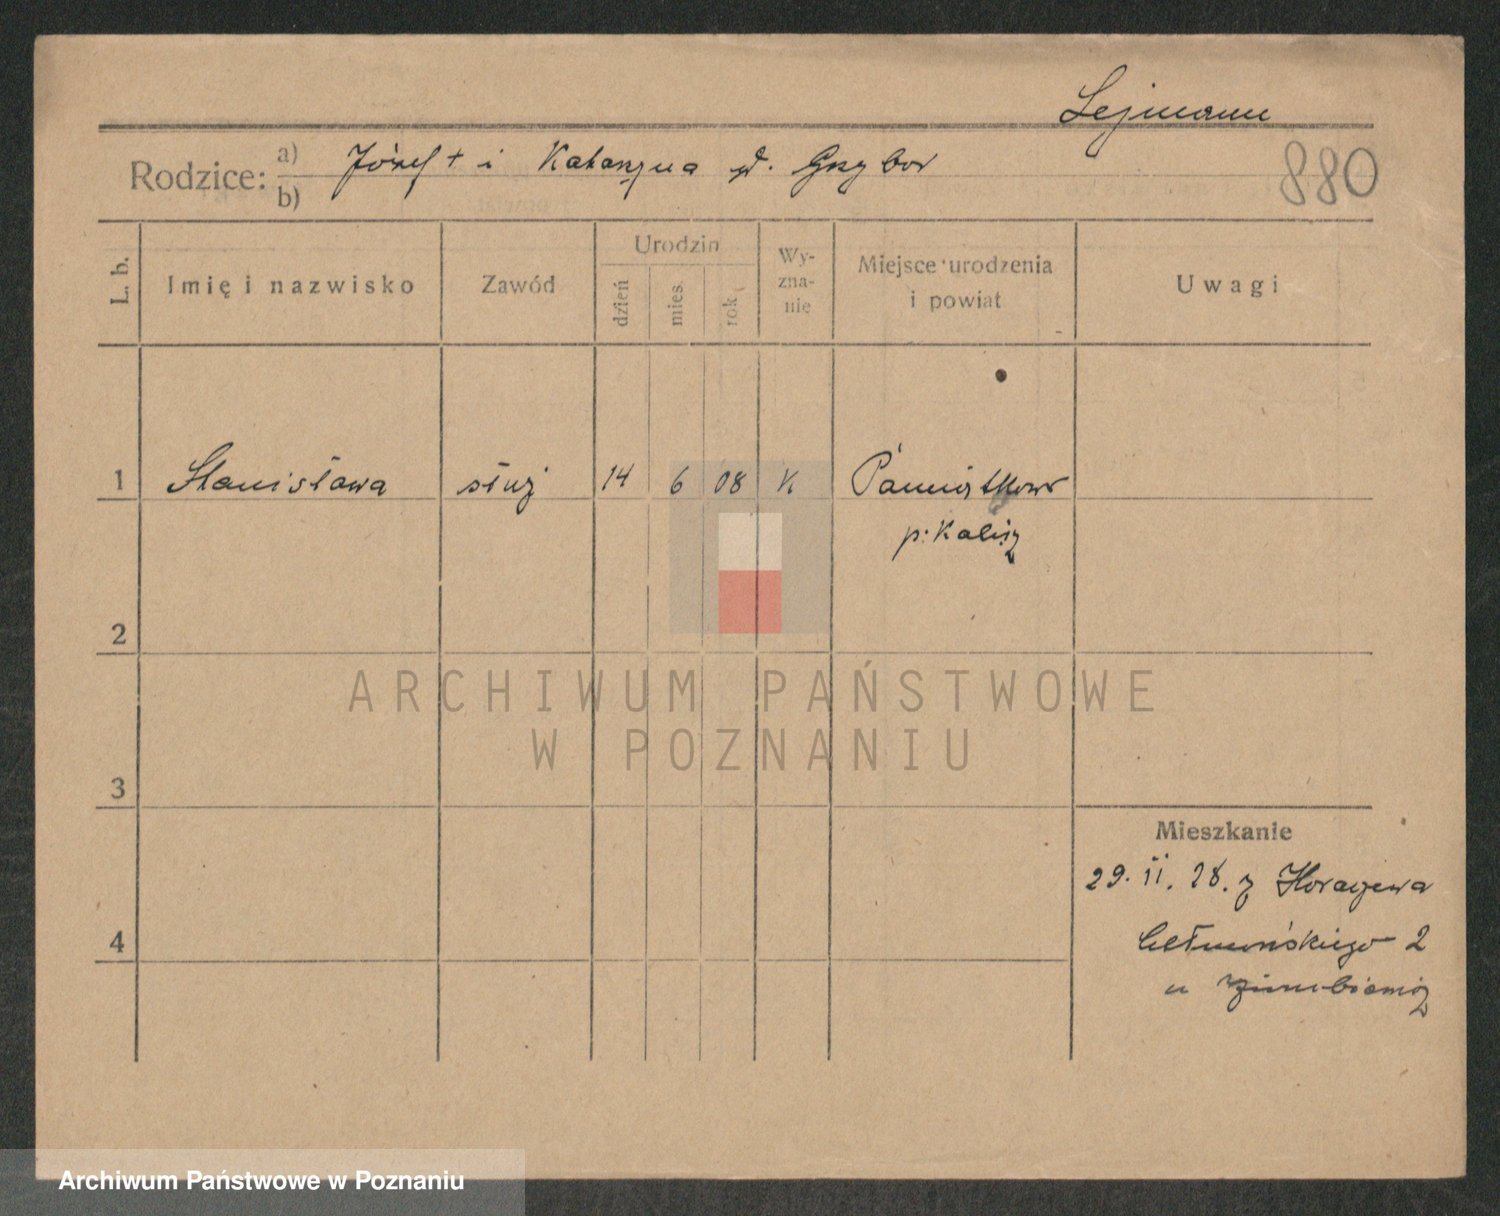 Lejmann
Rodzice: a) Józef + i Katarzyna ż d. Grzybor
b)
880
L. b.
Imię i nazwisko
Zawód
Urodzin
dzień
mies.
rok
Wy-
zna-
nie
Miejsce urodzenia
i powiat
Uwagi
1 Stanisława służ 14 6 08 K
p. Kalisz
2
ARCHIWUM PAŃSTWOWE
W POZNANIU
3
Mieszkanie
29. II. 28. z
4
Chełmońskiego 2
u
Archiwum Państwowe w Poznaniu